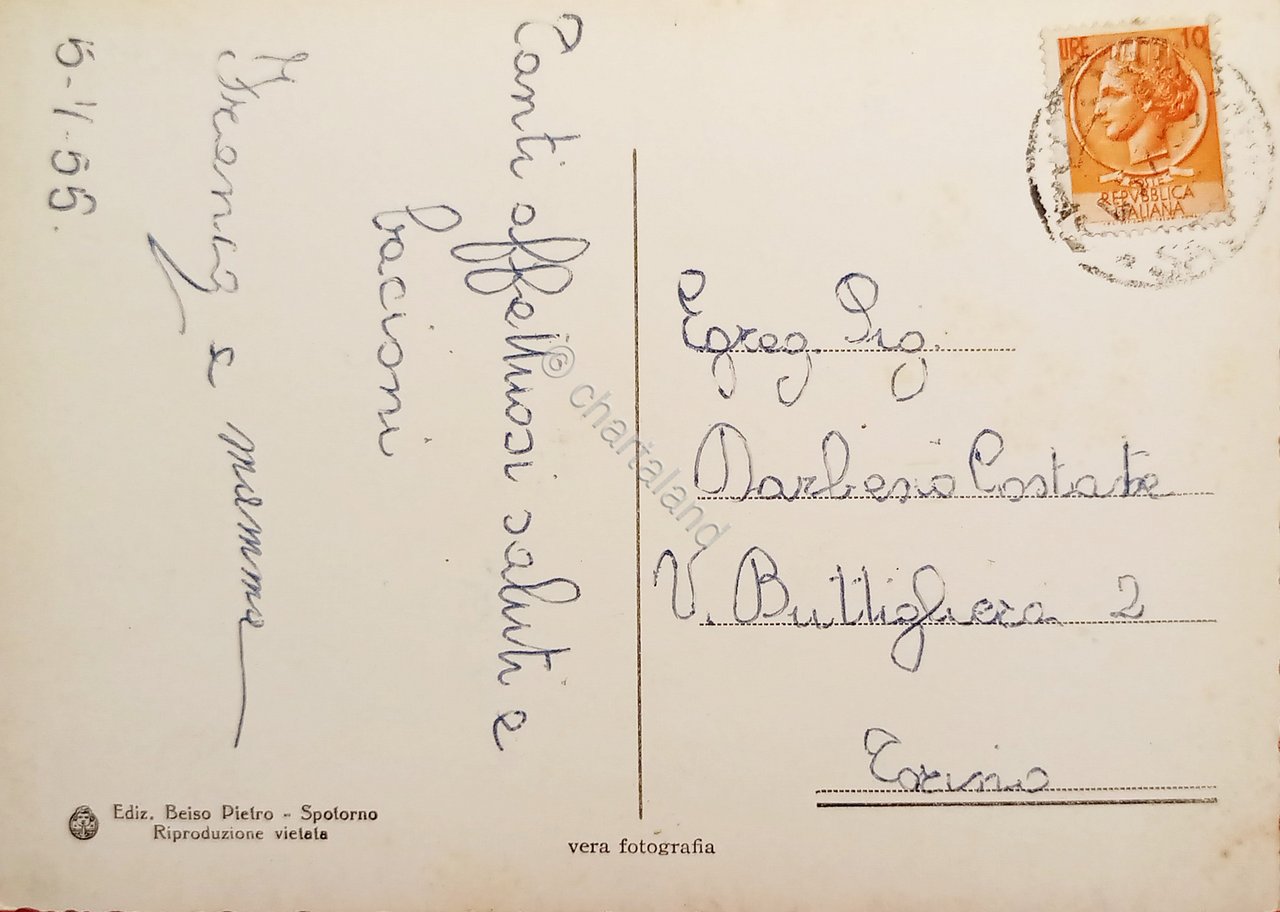 Tanti affettuosi saluti e
bacioni
e mamma
5-1-55.
Ediz. Beiso Pietro - Spotorno
Riproduzione vietata
vera fotografia
LIRE 10
POSTE
REPVBBLICA
ITALIANA
Egreg. Sig.
Costate
V. Buttigliera 2
Torino
© chartaland